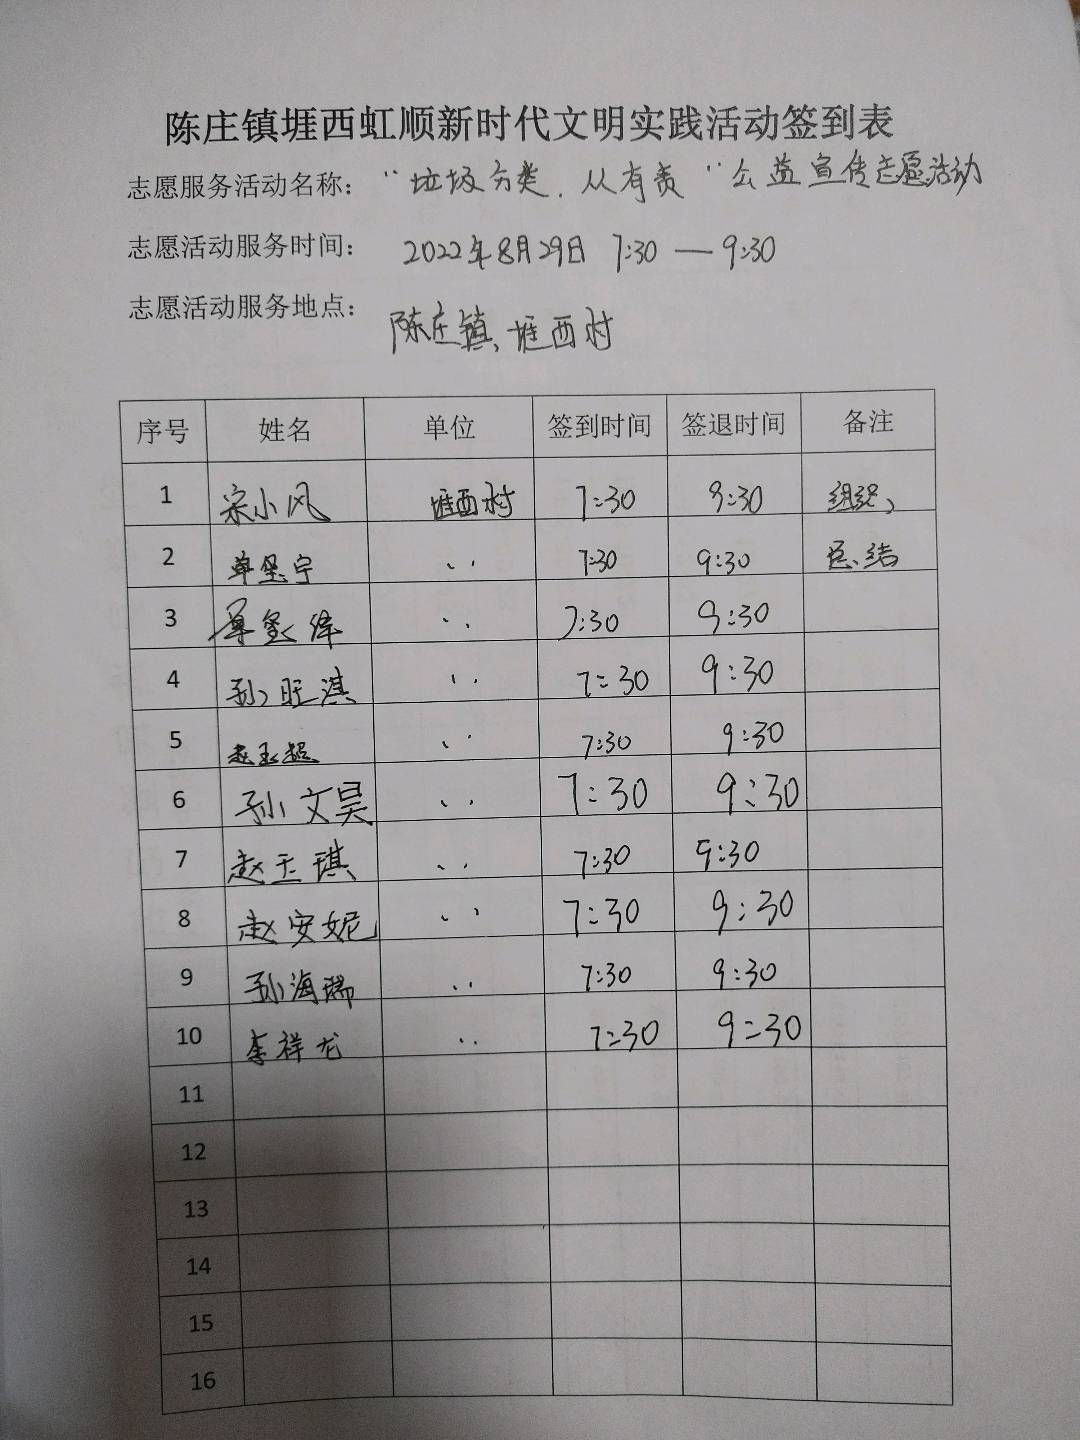 陈庄镇堐西虹顺新时代文明实践活动签到表
志愿服务活动名称： “垃圾分类，从有责”公益宣传志愿活动
志愿活动服务时间： 2022年8月29日 7:30 — 9:30
志愿活动服务地点： 陈庄镇、堐西村
序号 姓名 单位 签到时间 签退时间 备注
1 宋小风 堐西村 7:30 9:30 组织、
2 单坚宁 〃 7:30 9:30 总结
3 单 〃 7:30 9:30
4 孙旺淇 〃 7:30 9:30
5 赵玉超 〃 7:30 9:30
6 孙文昊 〃 7:30 9:30
7 赵玉琪 〃 7:30 9:30
8 赵安妮 〃 7:30 9:30
9 孙海瑞 〃 7:30 9:30
10 李祥龙 〃 7:30 9:30
11
12
13
14
15
16